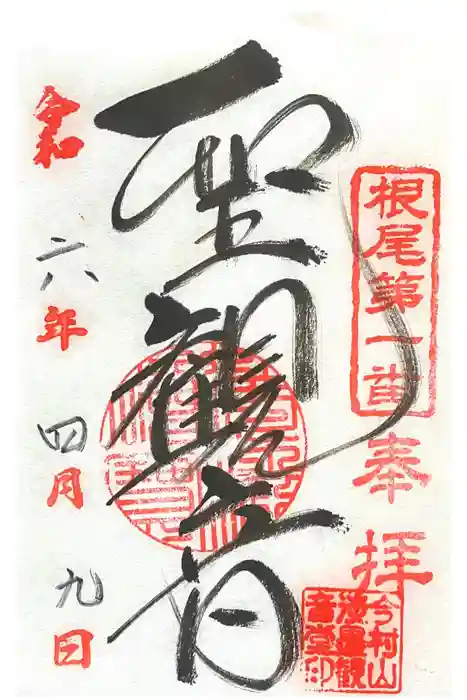 根尾第一番
奉拝
聖観音
令和六年四月九日
今村山
観
音堂印